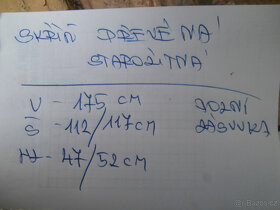 SKŘÍŇ DŘEVĚNÁ
STAROŽITNÁ
V - 175 CM DOLNÍ
Š - 112/117 CM ZÁSUVKA
H - 47/52 CM
Bazoš.cz